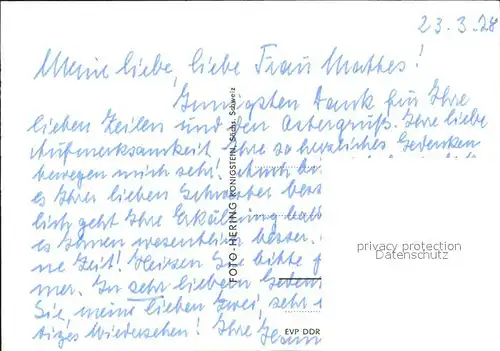 23.3.78
Meine liebe, liebe Frau Matthes!
Innigsten Dank für Ihre
lieben Zeilen und den Ostergruß. Ihre liebe
Aufmerksamkeit Ihre so herzliches Gedenken
bewegen mich sehr! Auch
es Ihrer lieben Schwester
lich geht Ihre Erkältung
es Ihnen wesentlich besser.
ne Zeit! Heizen Sie bitte
mer. In sehr liebem
Sie, meine lieben Zwei, sehr
tiges Wiedersehen! Ihre
FOTO-HERING KÖNIGSTEIN, Sächs. Schweiz
EVP DDR
privacy protection
Datenschutz